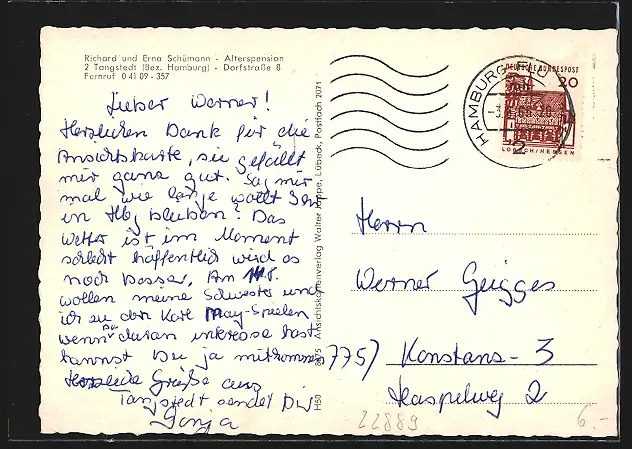 Richard und Erna Schümann - Alterspension
2 Tangstedt (Bez. Hamburg) - Dorfstraße 8
Fernruf 0 41 09 - 357
Lieber Werner!
Herzlichen Dank für die
Ansichtskarte, sie gefällt
mir ganz gut. Sag mir
mal wie lange wollt Ihr
in Hbg bleiben? Das
Wetter ist im Moment
schlecht hoffentlich wird es
noch besser. Am
wollen meine Schwester und
ich zu den Karl May-Spielen
wenn Du daran interesse hast
kannst Du ja mitkommen
Herzliche Grüße aus
Tangstedt sendet Dir
Sonja
H50 8675 Ansichtskartenverlag Walter Lübeck, Postfach 2071
HAMBURG
2
DEUTSCHE BUNDESPOST
20
LORSCH/HESSEN
Herrn
Werner Geigges
775) Konstanz - 3
Haspelweg 2
22889
6.-